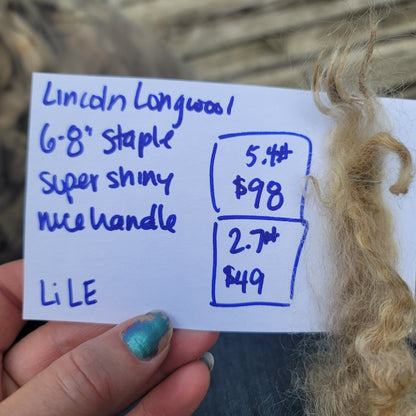 Lincoln Longwool
6-8" staple
super shiny
nice handle
LiLE
5.4#
$98
2.7#
$49